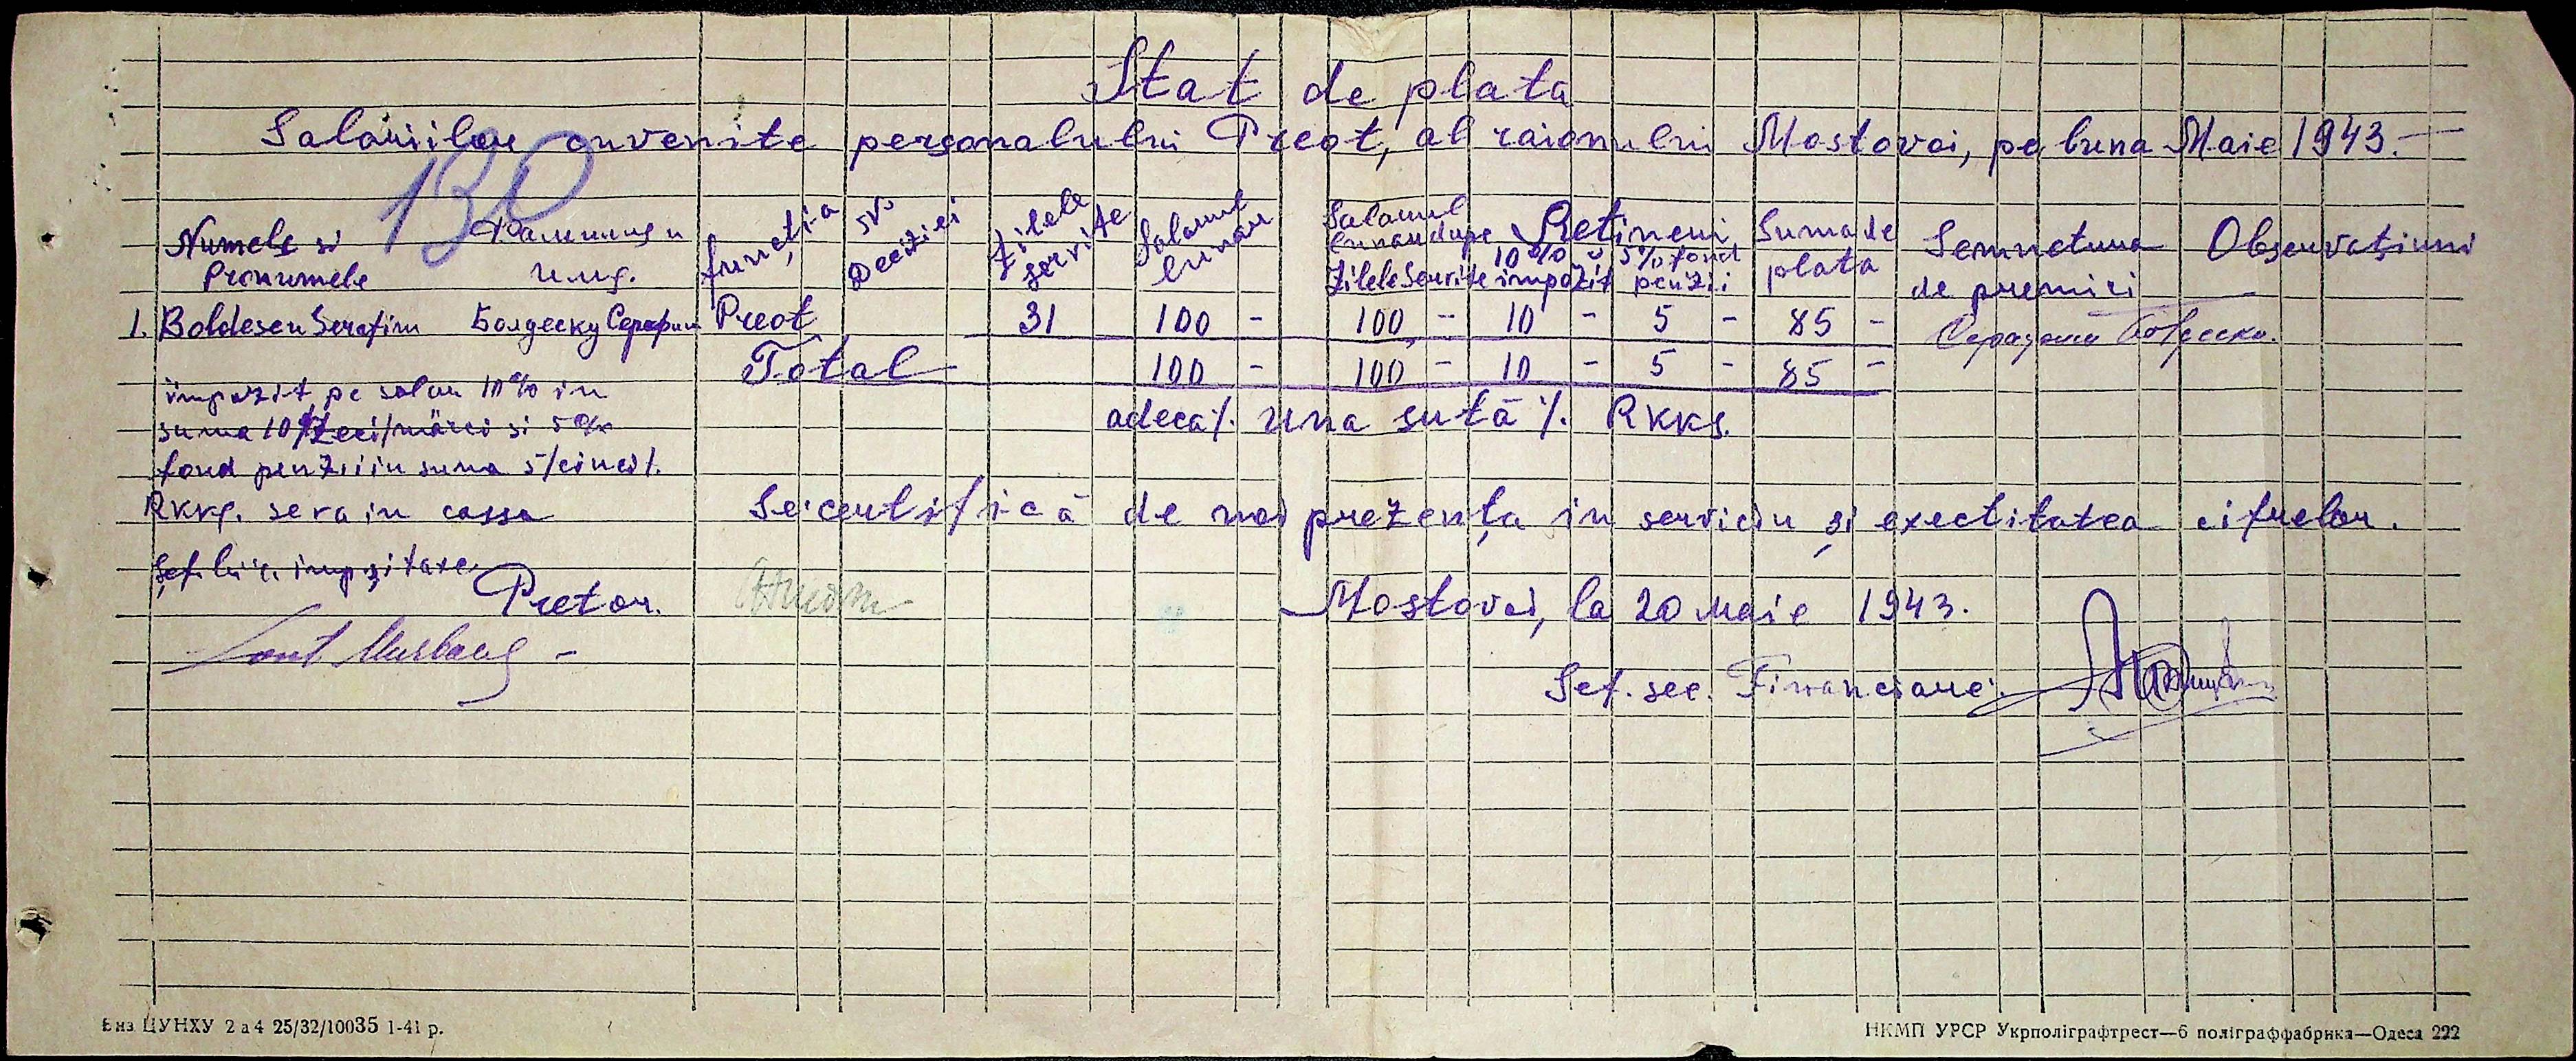 Stat de plata
Salariilor cuvenite personalului Preot, al raionului Mostovoi, pe luna Maie 1943.-
130
Numele si Pronumele
Фамилия и имя.
funcția
№ Deciziei
Zilele servite
Salarul lunar
Salarul lunar dupe Zilele servite
Retineri
10% impozit
5% fond penzii
Suma de plata
Semnetura de premiri
Observațiuni
1. Boldescu Serafim Болдеску Серафим Preot 31 100 - 100 - 10 - 5 - 85 - Серафим Болдеску.
Total - 100 - 100 - 10 - 5 - 85 -
adeca /. una sută /. RKKS.
impozit pe salar 10% in
suma 10/Zeci/mărci si 5%
fond penzii in suma 5/cinci/.
RKKS. se va in cassa
Se certifică de noi prezența in serviciu și exectitatea cifrelor.
Șef. impozitare.
Pretor.
Mostovoi, la 20 Maie 1943.
Sef. sec. Financiare.
Виз ЦУНХУ 2 а 4 25/32/10035 1-41 р.
НКМП УРСР Укрполіграфтрест—6 поліграффабрика—Одеса 222